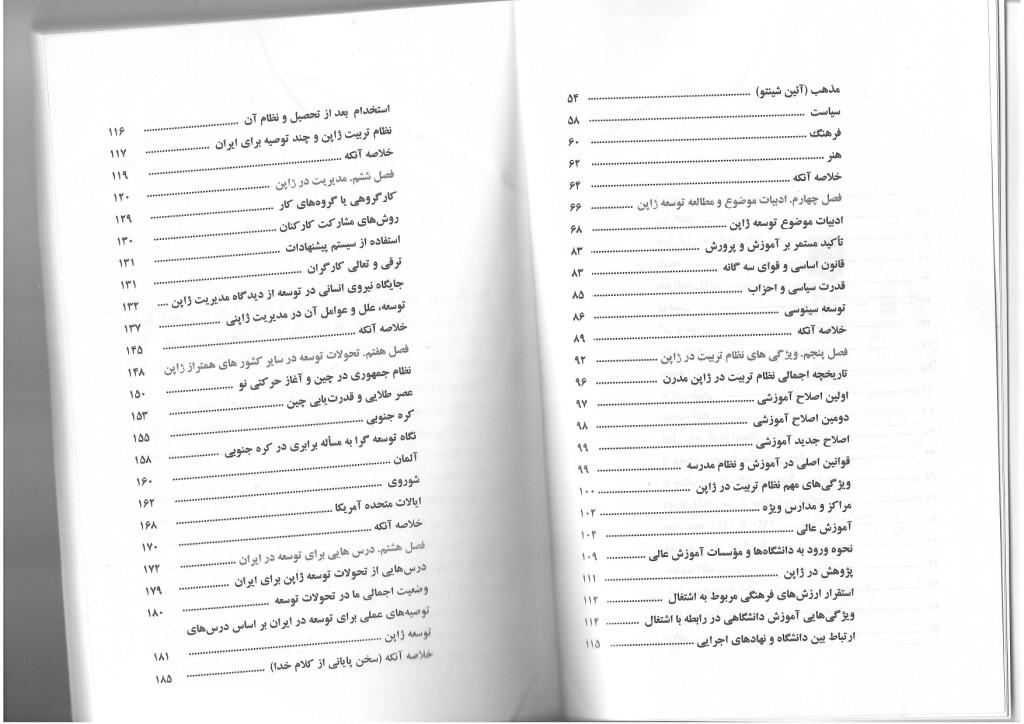 مذهب (آئین شینتو) ........................................ ۵۴
سیاست ........................................ ۵۸
فرهنگ ........................................ ۶۰
هنر ........................................ ۶۲
خلاصه آنکه ........................................ ۶۴
فصل چهارم. ادبیات موضوع و مطالعه توسعه ژاپن ............ ۶۶
ادبیات موضوع توسعه ژاپن ........................................ ۶۸
تأکید مستمر بر آموزش و پرورش ........................................ ۸۳
قانون اساسی و قوای سه گانه ........................................ ۸۳
قدرت سیاسی و احزاب ........................................ ۸۵
توسعه سینوسی ........................................ ۸۶
خلاصه آنکه ........................................ ۸۹
فصل پنجم. ویژگی های نظام تربیت در ژاپن .................... ۹۲
تاریخچه اجمالی نظام تربیت در ژاپن مدرن .................... ۹۶
اولین اصلاح آموزشی ........................................ ۹۷
دومین اصلاح آموزشی ........................................ ۹۸
اصلاح جدید آموزشی ........................................ ۹۹
قوانین اصلی در آموزش و نظام مدرسه .................... ۹۹
ویژگی‌های مهم نظام تربیت در ژاپن .................... ۱۰۰
مراکز و مدارس ویژه ........................................ ۱۰۲
آموزش عالی ........................................ ۱۰۴
نحوه ورود به دانشگاه‌ها و مؤسسات آموزش عالی ............ ۱۰۹
پژوهش در ژاپن ........................................ ۱۱۱
استقرار ارزش‌های فرهنگی مربوط به اشتغال .................... ۱۱۲
ویژگی‌هایی آموزش دانشگاهی در رابطه با اشتغال ............ ۱۱۴
ارتباط بین دانشگاه و نهادهای اجرایی .................... ۱۱۵
استخدام بعد از تحصیل و نظام آن .................... ۱۱۶
نظام تربیت ژاپن و چند توصیه برای ایران .................... ۱۱۷
خلاصه آنکه ........................................ ۱۱۹
فصل ششم. مدیریت در ژاپن .................... ۱۲۰
کارگروهی یا گروه‌های کار .................... ۱۲۹
روش‌های مشارکت کارکنان .................... ۱۳۰
استفاده از سیستم پیشنهادات .................... ۱۳۱
ترقی و تعالی کارگران .................... ۱۳۱
جایگاه نیروی انسانی در توسعه از دیدگاه مدیریت ژاپن .... ۱۳۲
توسعه، علل و عوامل آن در مدیریت ژاپنی .................... ۱۳۷
خلاصه آنکه ........................................ ۱۴۵
فصل هفتم. تحولات توسعه در سایر کشور های همتراز ژاپن ۱۴۸
نظام جمهوری در چین و آغاز حرکتی نو .................... ۱۵۰
عصر طلایی و قدرت‌یابی چین .................... ۱۵۳
کره جنوبی ........................................ ۱۵۵
نگاه توسعه گرا به مسأله برابری در کره جنوبی ............ ۱۵۸
آلمان ........................................ ۱۶۰
شوروی ........................................ ۱۶۲
ایالات متحده آمریکا ........................................ ۱۶۸
خلاصه آنکه ........................................ ۱۷۰
فصل هشتم. درس هایی برای توسعه در ایران .................... ۱۷۲
درس‌هایی از تحولات توسعه ژاپن برای ایران .................... ۱۷۹
وضعیت اجمالی ما در تحولات توسعه .................... ۱۸۰
توصیه‌های عملی برای توسعه در ایران بر اساس درس‌های
توسعه ژاپن ........................................ ۱۸۱
خلاصه آنکه (سخن پایانی از کلام خدا) .................... ۱۸۵